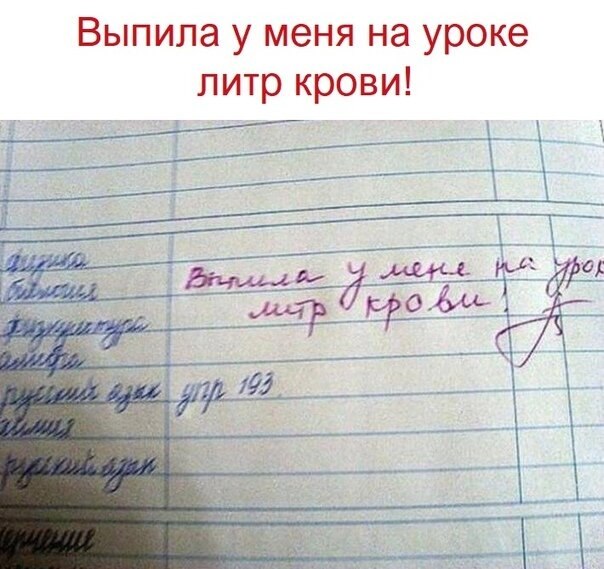 Выпила у меня на уроке
литр крови!
физика
биология
Выпила у мене на урок
литр крови!
физкультура
алгебра
русский язык упр 193
химия
русский язык
черчение